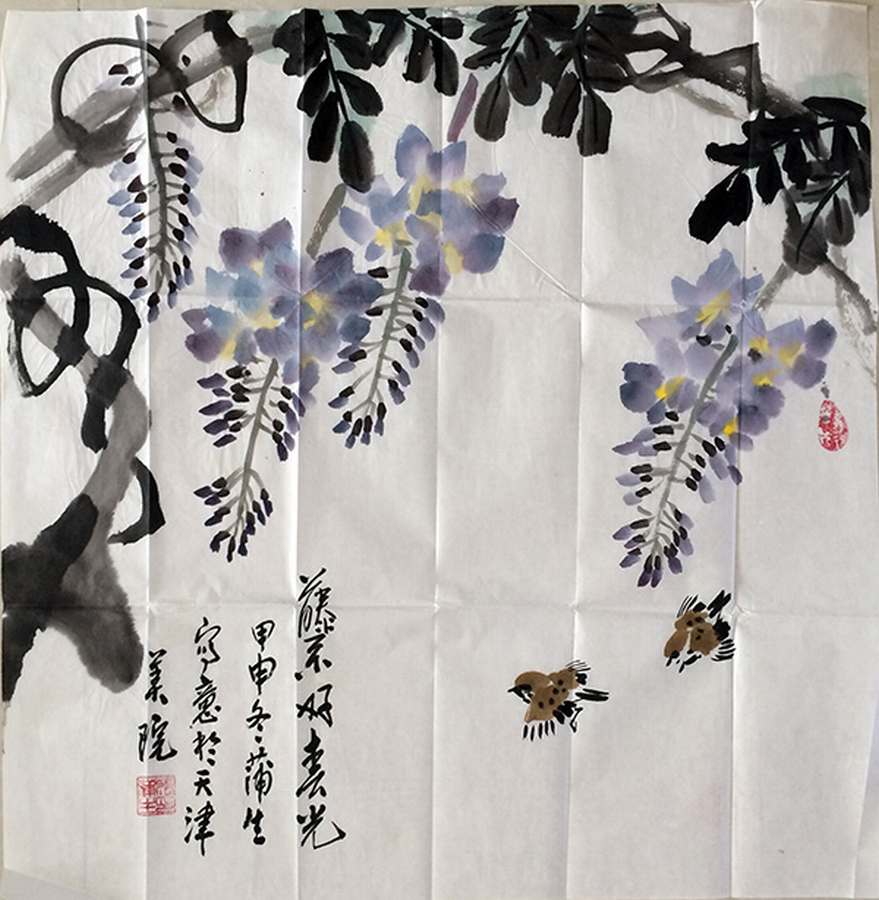 藤系好春光
甲申冬蒲生
写意於天津
美院